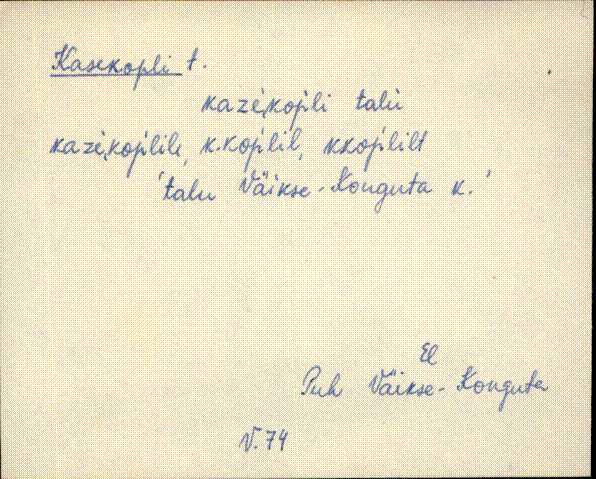 Kasekopli t.
kazè,kop̀li talù
kazè,kop̀lile, k.kop̀lil, k.kop̀lilt
'talu Väikse-Konguta k.'
El
Puh Väikse-Konguta
V.74